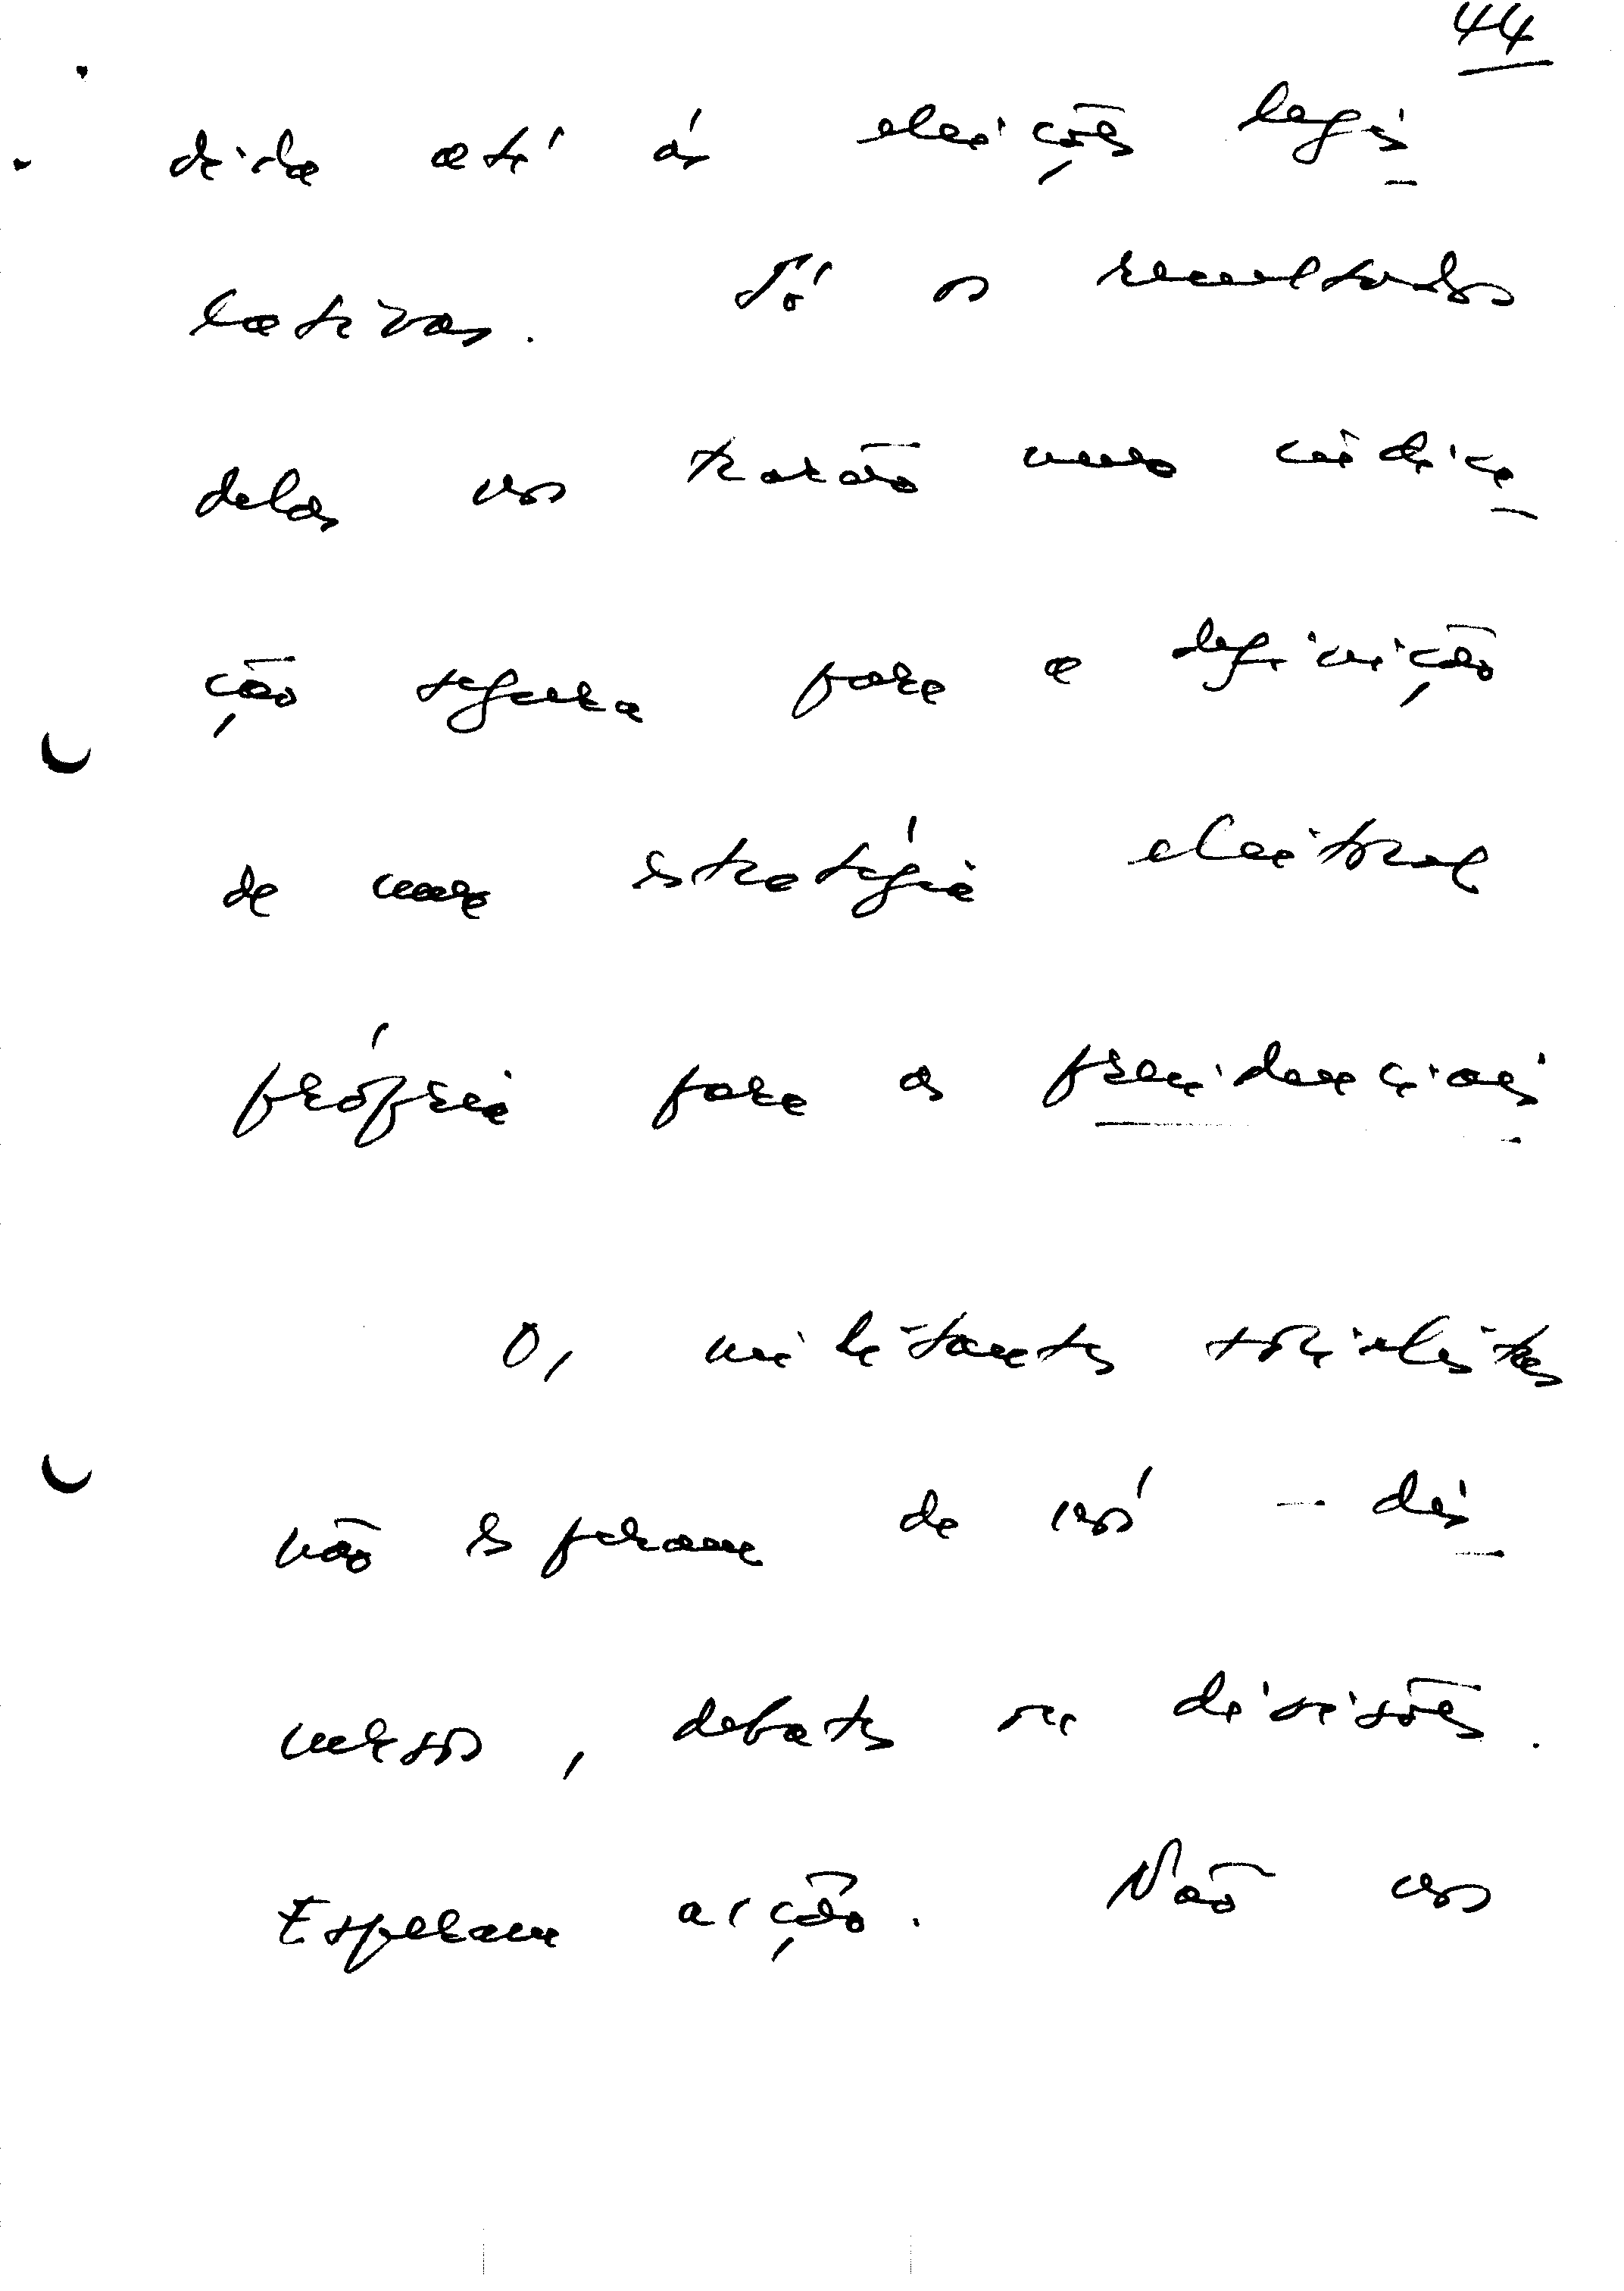 44
dida até às eleições legis
lativas. Só os resultados
delas nos trarão uma indica
ção segura para a definição
de uma estratégia eleitoral
própria para as presidenciais
Os militantes socialistas
não esperam de nós - dis
cursos, debates ou divisões.
Esperam acção. Não nos